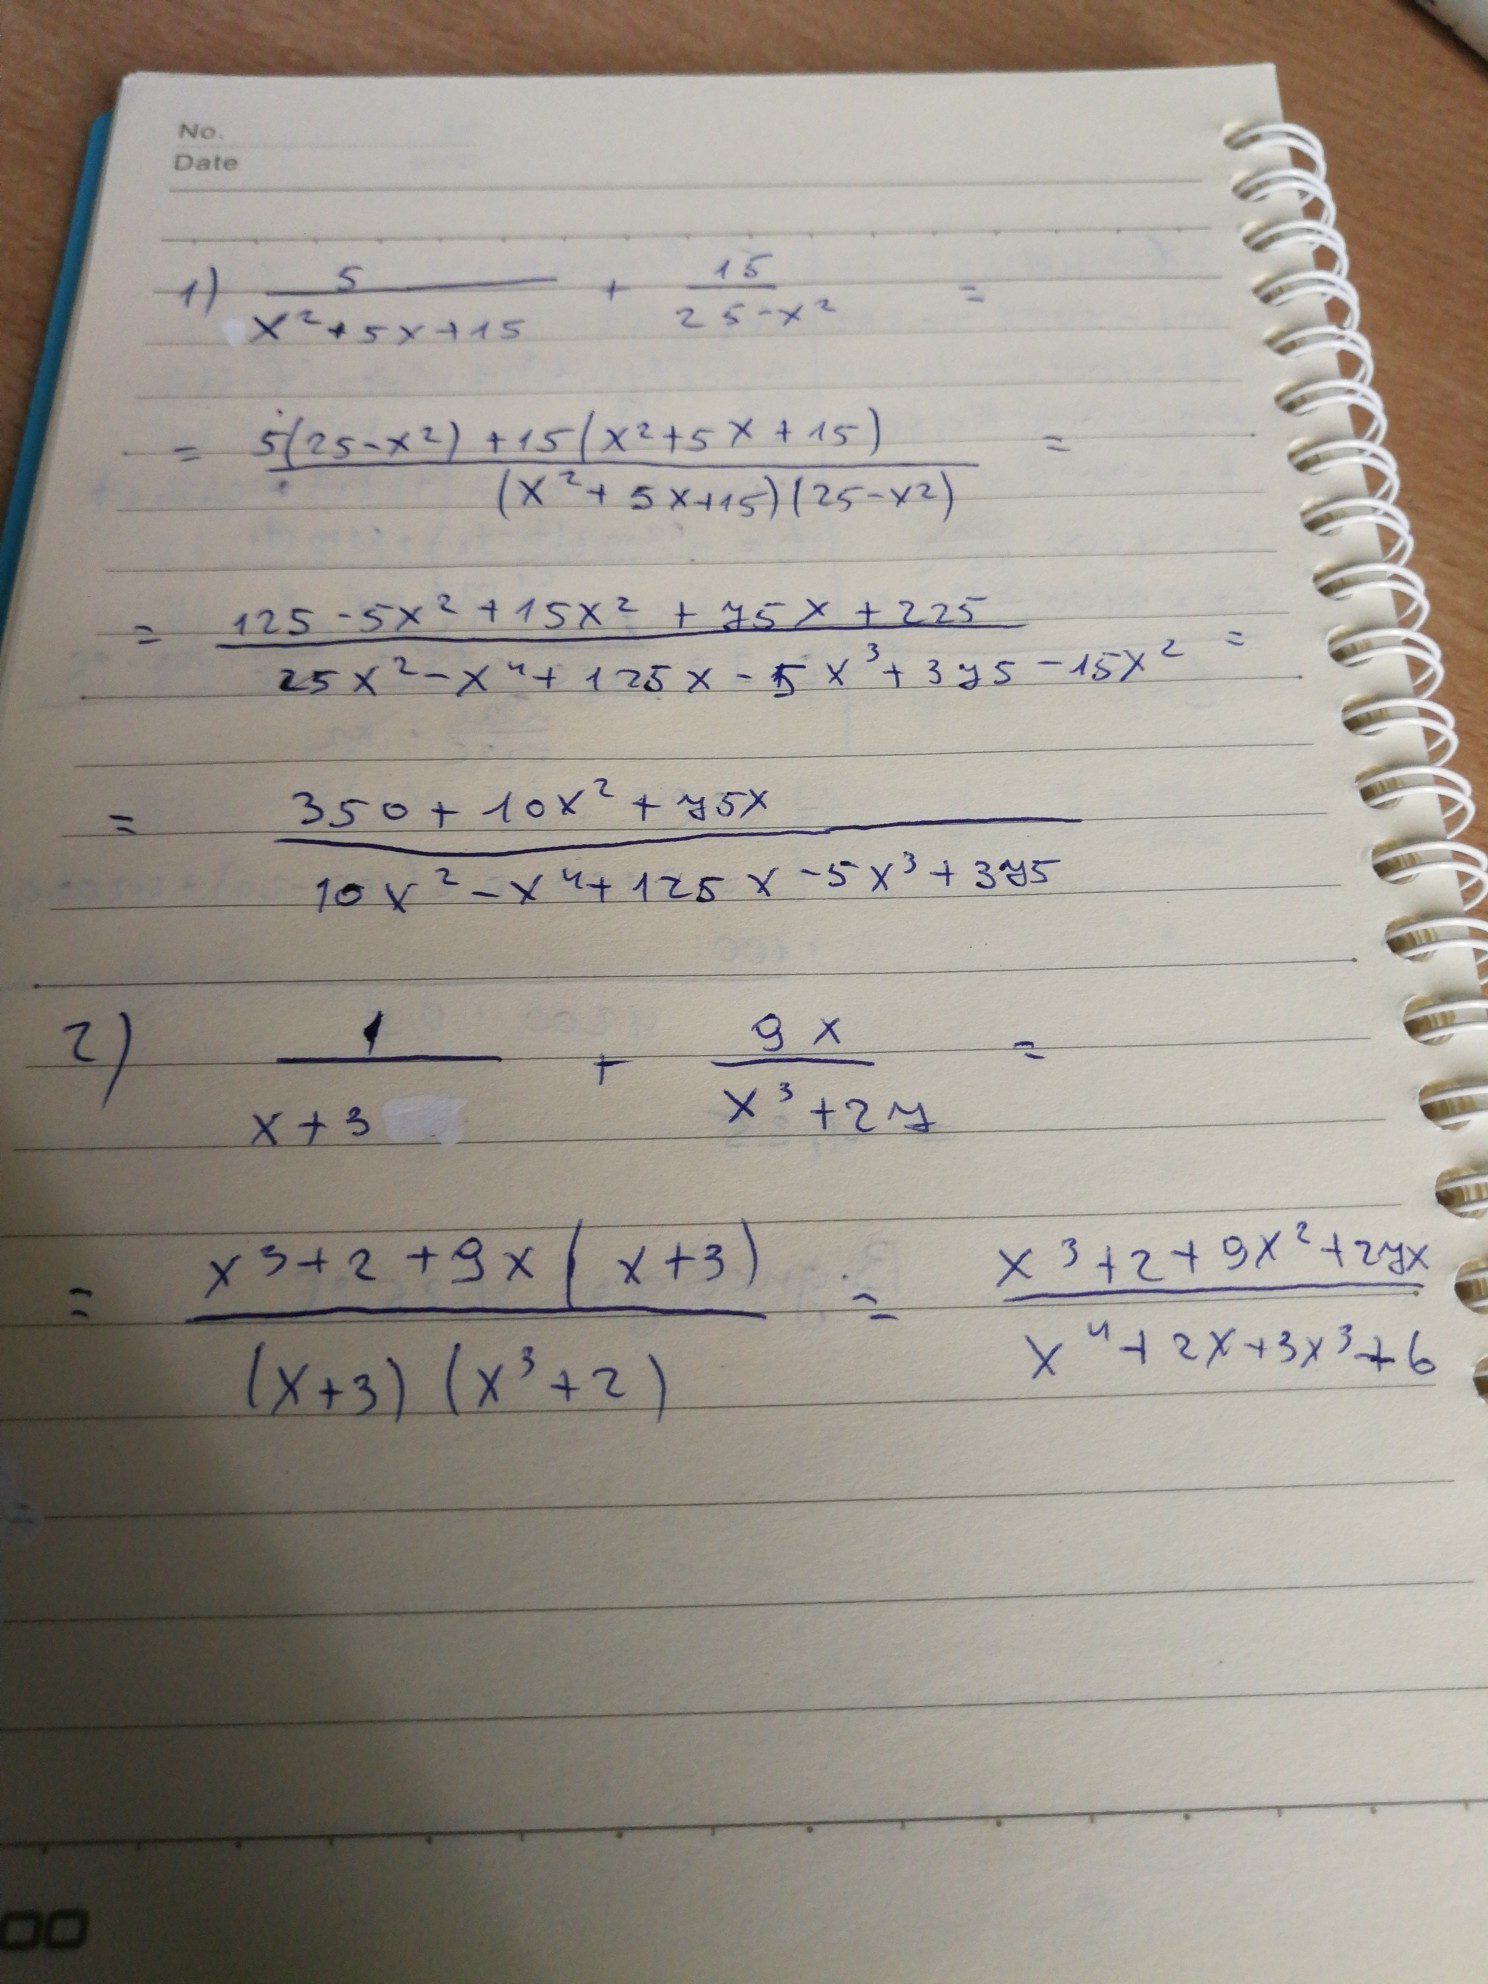 No.
Date
1) 5/(x²+5x+15) + 15/(25-x²) =
= (5(25-x²)+15(x²+5x+15))/((x²+5x+15)(25-x²)) =
= (125-5x²+15x²+75x+225)/(25x²-x⁴+125x-5x³+375-15x²) =
= (350+10x²+75x)/(10x²-x⁴+125x-5x³+375)
2) 1/(x+3) + 9x/(x³+27) =
= (x³+2+9x(x+3))/((x+3)(x³+2)) = (x³+2+9x²+27x)/(x⁴+2x+3x³+6)
00